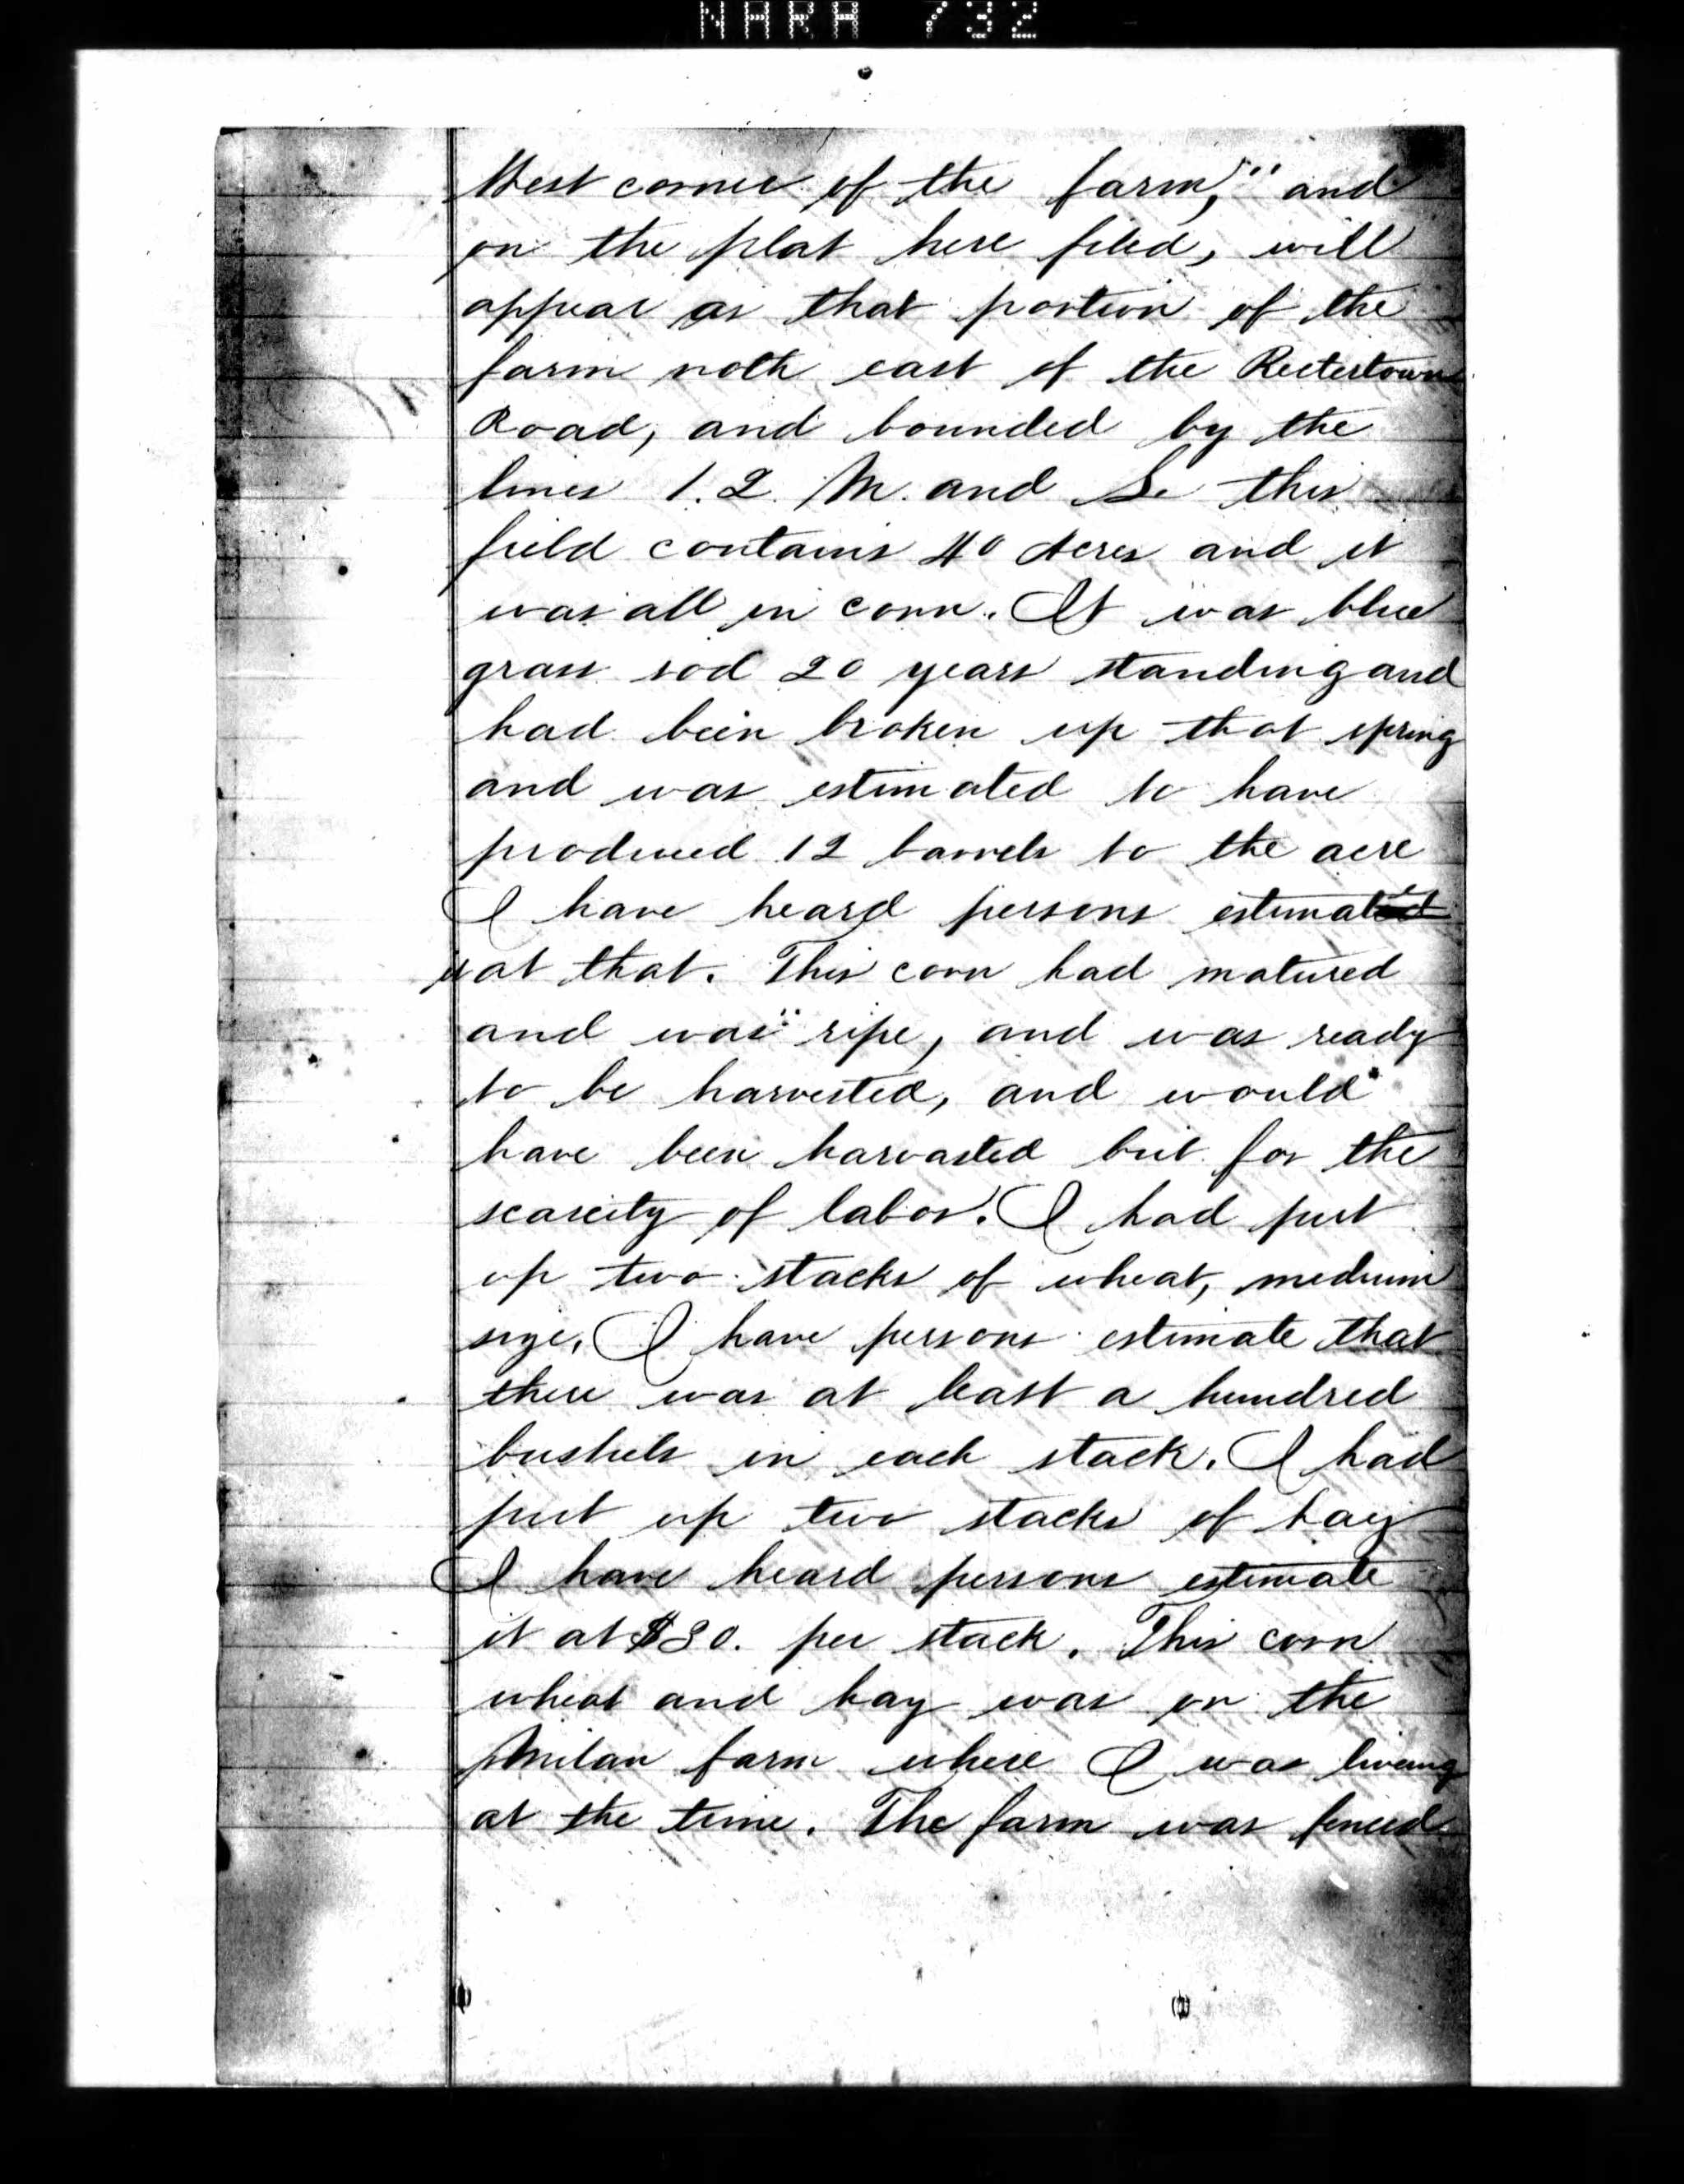 NARA 732
West corner of the farm," and
on the plat here filed, will
appear as that portion of the
farm noth east of the Rectertown
Road, and bounded by the
lines 1. 2. M. and S. this
field contains 40 Acres and it
was all in corn. It was blue
grass sod 20 years standing and
had been broken up that spring
and was estimated to have
produced 12 barrels to the acre
I have heard persons estimate
it at that. This corn had matured
and was ripe, and was ready
to be harvested, and would
have been harvasted but for the
scarcity of labor. I had put
up two stacks of wheat, medium
size, I have persons estimate that
there was at least a hundred
bushels in each stack. I had
put up two stacks of hay
I have heard persons estimate
it at $30. per stack. This corn
wheat and hay was on the
Milan farm where I was living
at the time. The farm was fenced